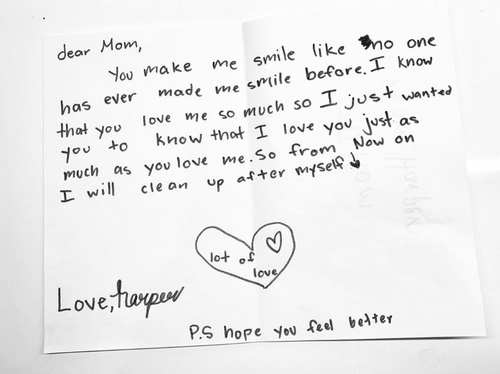 dear Mom,
You make me smile like no one
has ever made me smile before. I know
that you love me so much so I just wanted
you to know that I love you just as
much as you love me. So from Now on
I will clean up after myself ↓
lot of
love
Love, harper
P.S hope you feel better